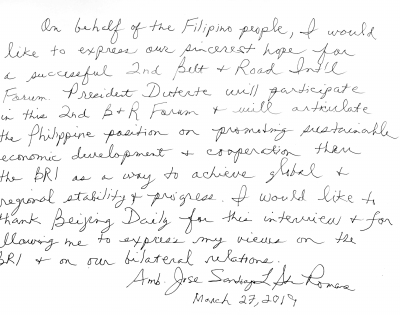 On behalf of the Filipino people, I would
like to express our sincerest hope for
a successful 2nd Belt & Road Int'l
Forum. President Duterte will participate
in this 2nd B+R Forum & will articulate
the Philippine position on promoting sustainable
economic development & cooperation thru
the BRI as a way to achieve global &
regional stability & progress. I would like to
thank Beijing Daily for this interview & for
llowing me to express my views on the
BRI & on our bilateral relations.
Amb. Jose Santiago L. Sta. Romana
March 27, 2019